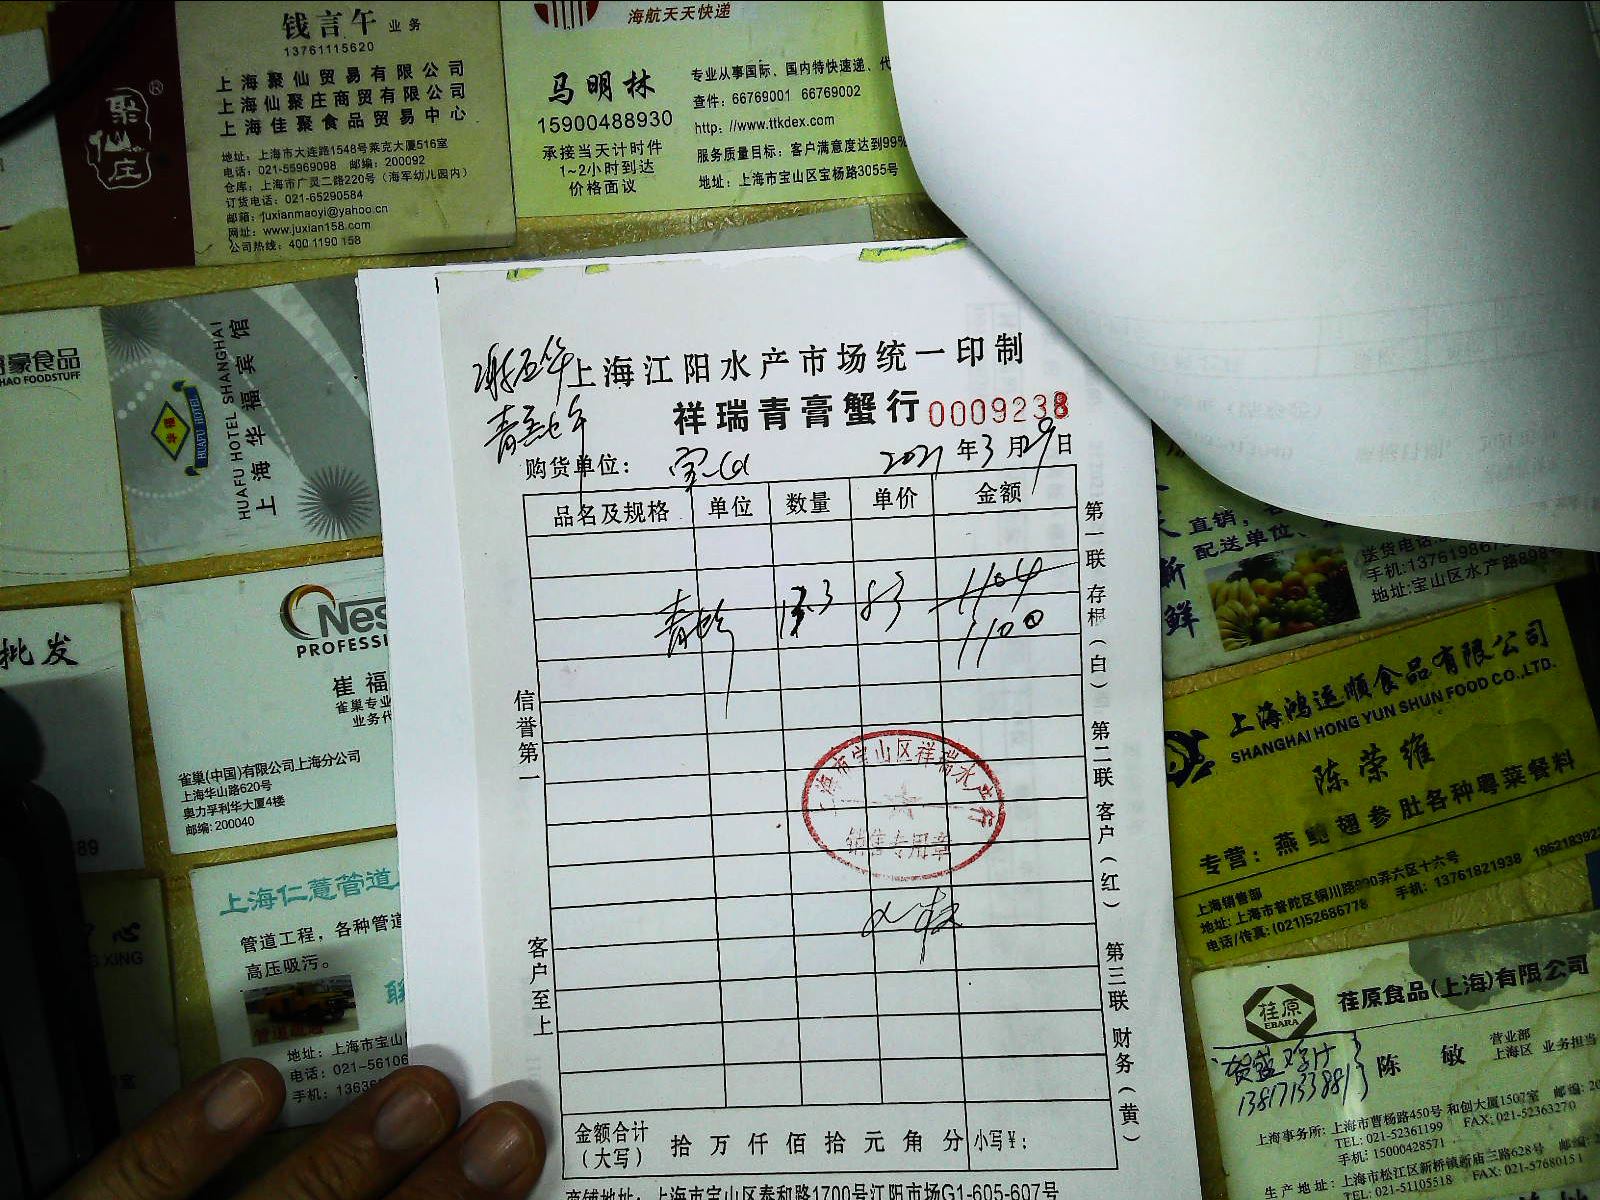 钱言午 业务
13761115620
上海聚仙贸易有限公司
上海仙聚庄商贸有限公司
上海佳聚食品贸易中心
地址：上海市大连路1548号莱克大厦516室
电话：021-55969098 邮编：200092
仓库：上海市广灵二路220号（海军幼儿园内）
订货电话：021-65290584
邮箱：juxianmaoyi@yahoo.cn
网址：www.juxian158.com
公司热线：400 1190 158
聚仙庄®
海航天天快递
马明林
15900488930
承接当天计时件
1~2小时到达
价格面议
专业从事国际、国内特快速递、代
查件：66769001 66769002
http://www.ttkdex.com
服务质量目标：客户满意度达到99%
地址：上海市宝山区宝杨路3055号
豪食品
HAO FOODSTUFF
HUAFU HOTEL
HUAFU HOTEL SHANGHAI
上海华福宾馆
上海江阳水产市场统一印制
祥瑞青膏蟹行 0009238
购货单位： 2021年3月29日
品名及规格 单位 数量 单价 金额
83 1104
1100
信誉第一
客户至上
第一联存根（白） 第二联客户（红） 第三联财务（黄）
上海市宝山区祥瑞水产行
销售专用章
金额合计（大写） 拾万仟佰拾元角分 小写¥：
商铺地址：上海市宝山区泰和路1700号江阳市场G1-605-607号
批发
Nes
PROFESSI
崔福
雀巢专业
业务代
雀巢(中国)有限公司上海分公司
上海华山路620号
奥力孚利华大厦4楼
邮编：200040
89
心
XING
上海仁薏管道
管道工程，各种管道
高压吸污。
联
管道疏通
地址：上海市宝山
电话：021-56106
手机：13636
直销，
配送单位、
新鲜
送货电话:
手机:13761986
地址:宝山区水产路898
上海鸿运顺食品有限公司
SHANGHAI HONG YUN SHUN FOOD CO.,LTD.
陈荣维
专营：燕鲍翅参肚各种粤菜餐料
上海销售部
地址：上海市普陀区铜川路890弄六区十六号
电话/传真：(021)52686778 手机：13761821938 1862183922
荏原
EBARA
荏原食品(上海)有限公司
陈敏 营业部
上海区 业务担当
13817133881
上海事务所：上海市曹杨路450号 和创大厦1507室 邮编：20
TEL: 021-52361199 FAX: 021-52363270
手机：15000428571
生产地址：上海市松江区新桥镇新庙三路628号 邮编：20
TEL: 021-51105518 FAX: 021-57680151